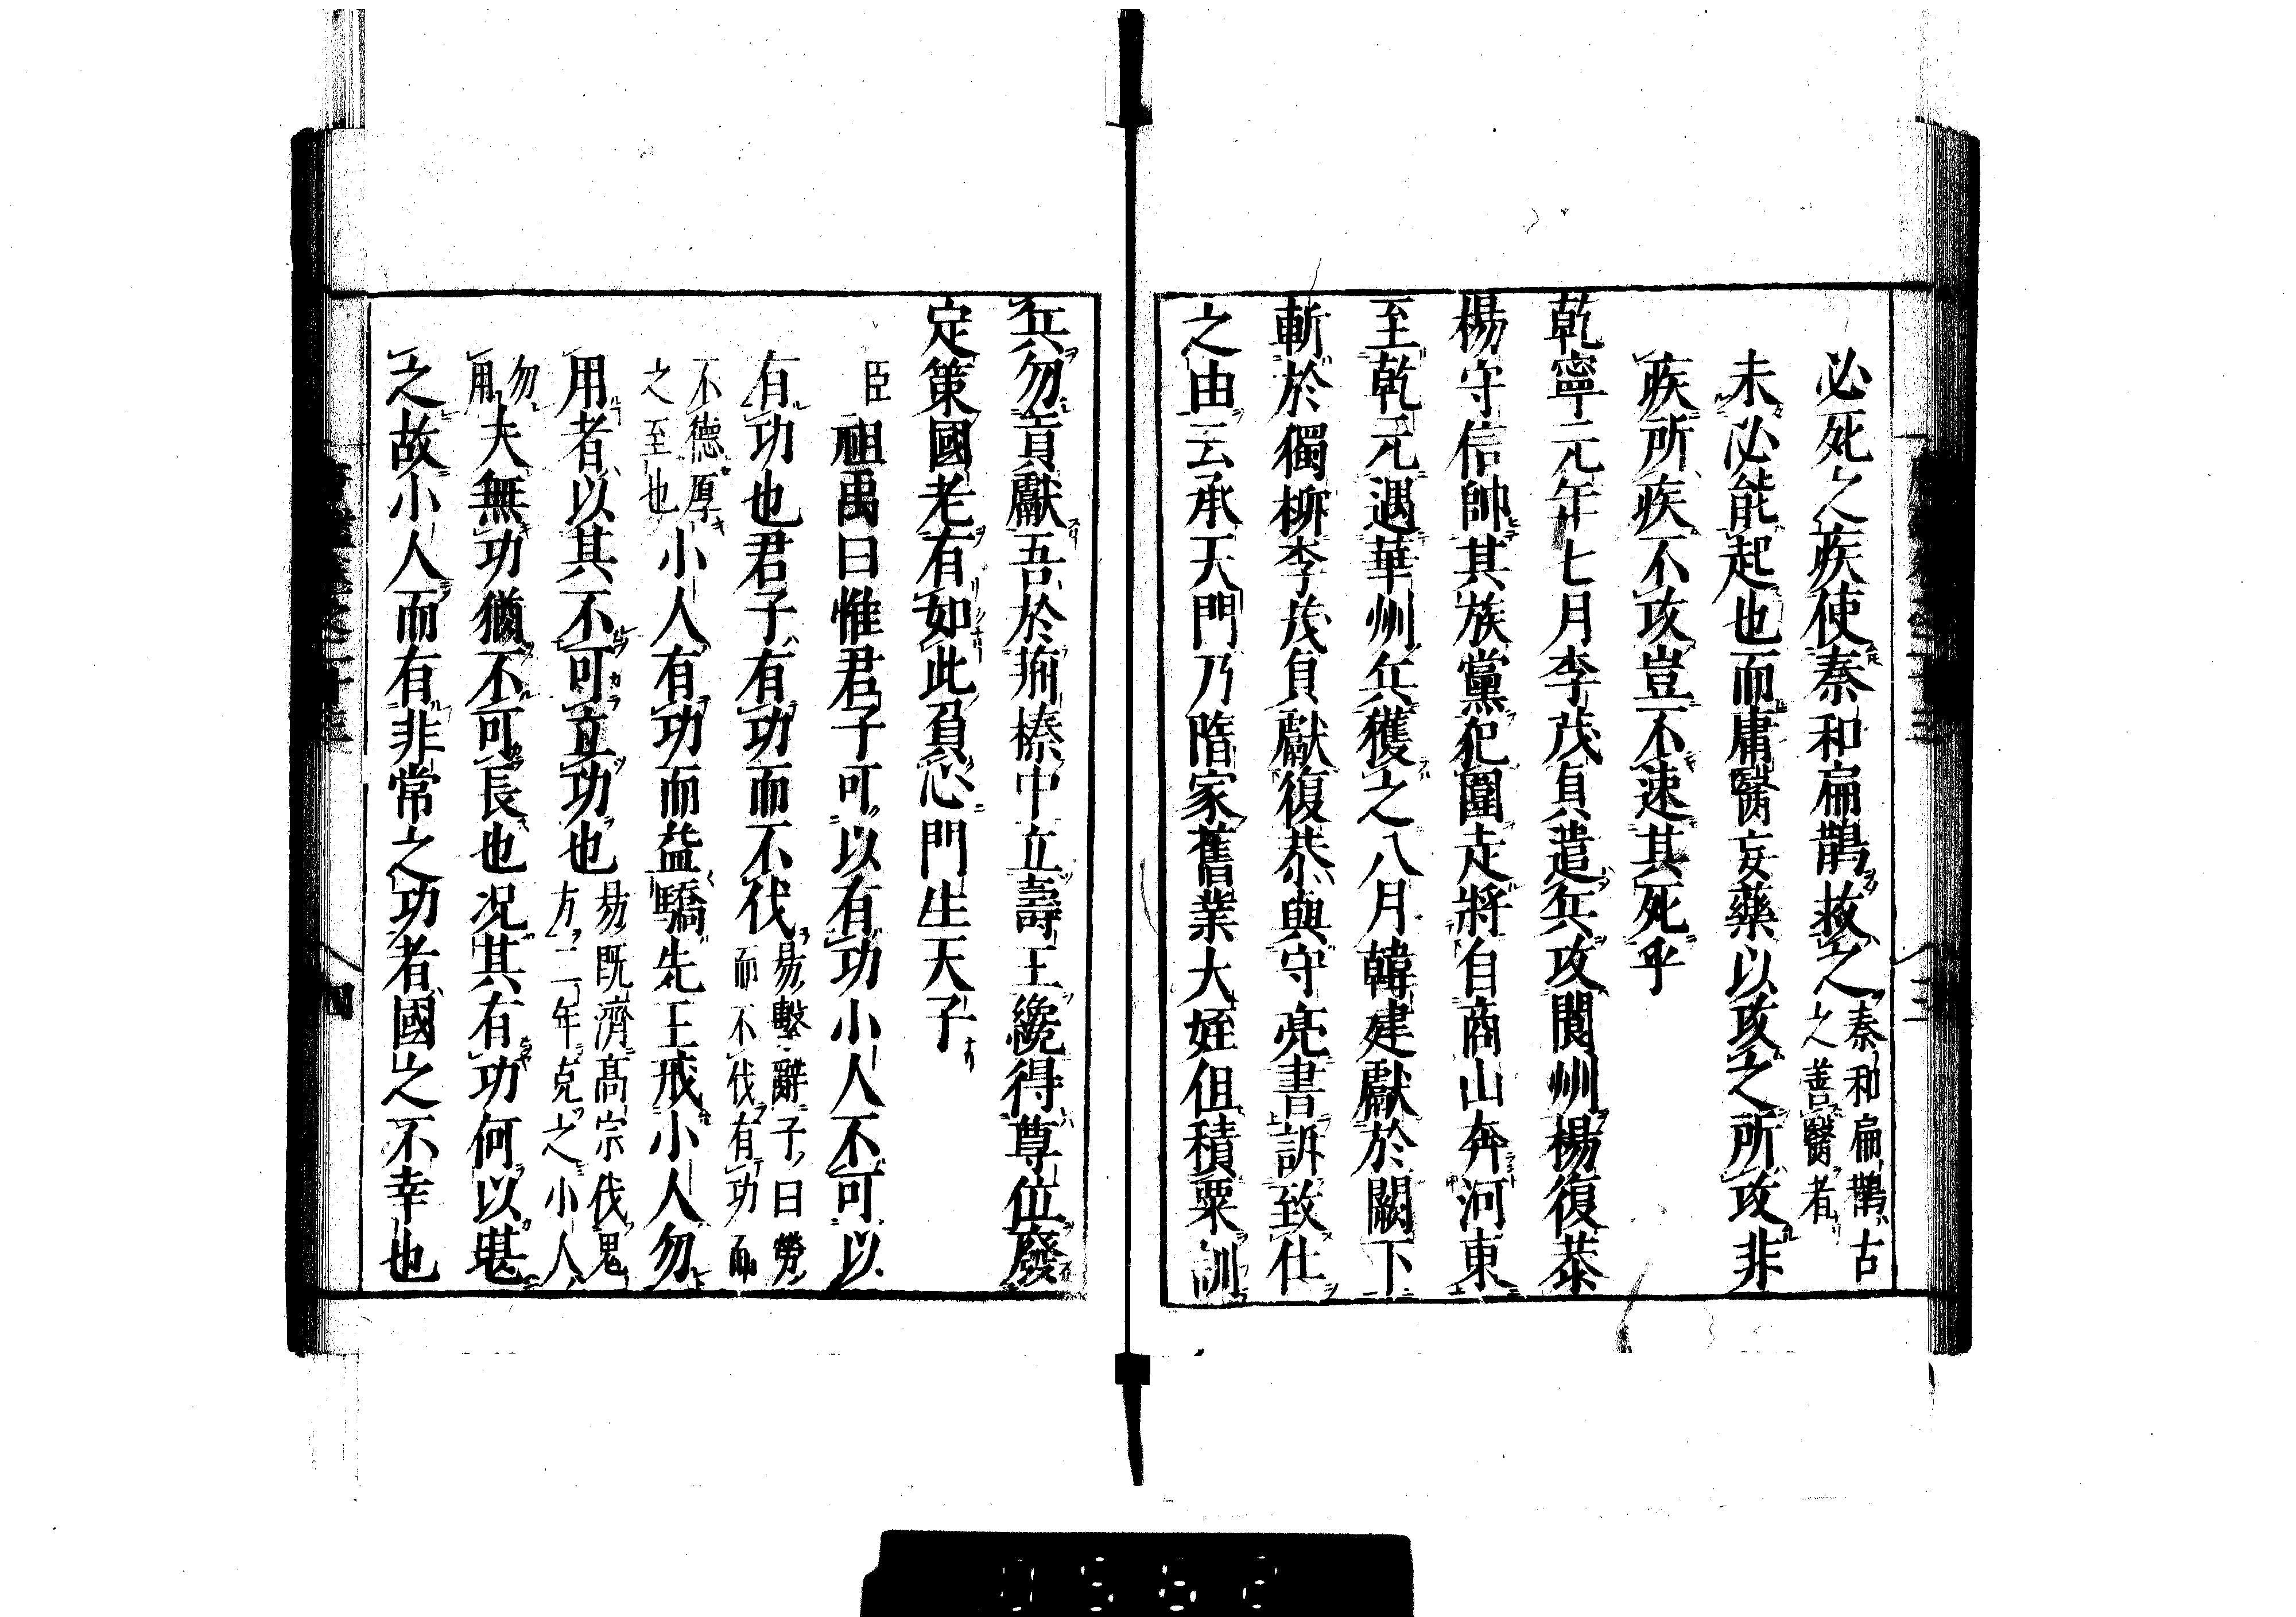 必死之疾使秦和扁鵲救之秦和扁鵲古
之善醫者
未必能起也而庸醫妄藥以攻之所攻非
疾所疾不攻豈不速其死乎
乾寧元年七月李茂貞遣兵攻閬州楊復恭
楊守信帥其族黨犯圍走將自商山奔河東
至乾元遇華州兵獲之八月韓建獻於闕下
斬於獨柳李茂貞獻復恭與守亮書訴致仕
之由云承天門乃隋家舊業大姪但積粟訓
兵勿貢獻吾於荊榛中立壽王纔得尊位廢
定策國老有如此負心門生天子
臣祖禹曰惟君子可以有功小人不可以
有功也君子有功而不伐易繫辭子曰勞而
而不伐有功而
不德厚
之至也小人有功而益驕先王戒小人勿
用者以其不可立功也易既濟高宗伐鬼
方三年克之小人
勿
用夫無功猶不可長也況其有功何以堪
之故小人而有非常之功者國之不幸也